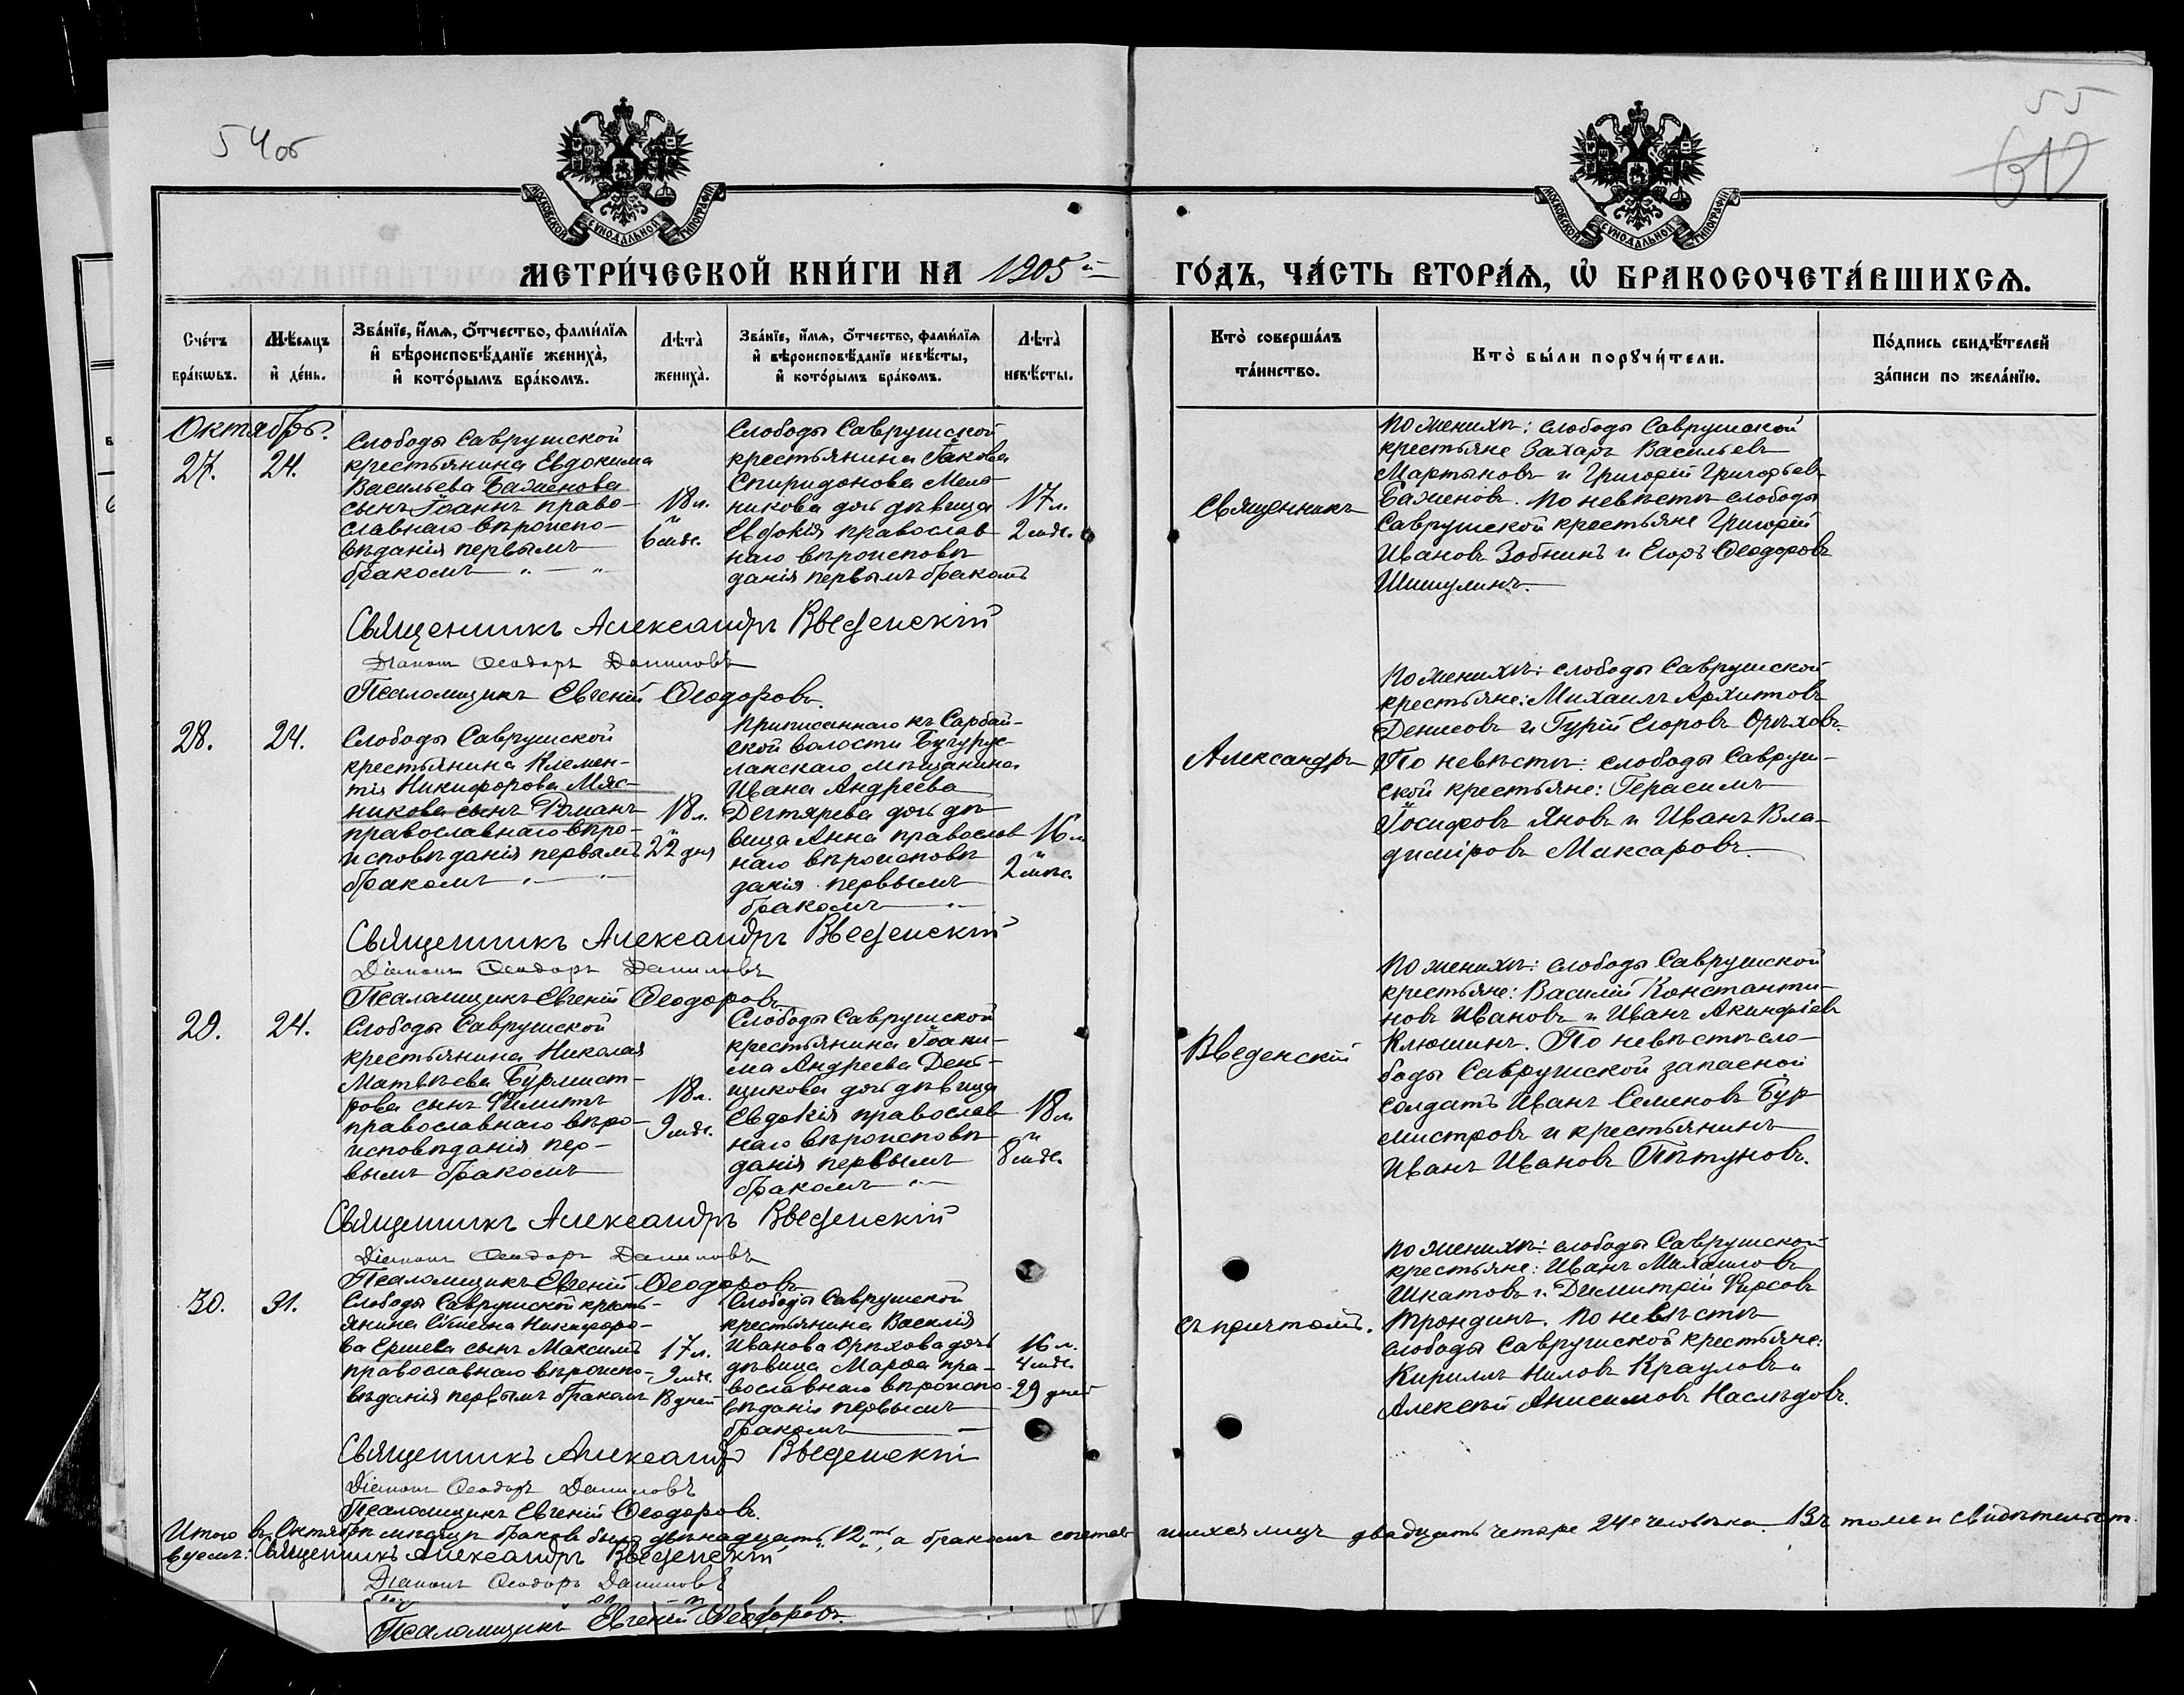 54об
55
МОСКОВСКОЙ СУНОДАЛЬНОЙ ТИПОГРАФІИ
МОСКОВСКОЙ СУНОДАЛЬНОЙ ТИПОГРАФІИ
МЕТРИ́ЧЕСКОЙ КНИ́ГИ НА 1905й
ГО́ДЪ, ЧА́СТЬ ВТОРА́Ѧ, Ѡ҆ БРАКОСОЧЕТА́ВШИХСѦ.
Сче́тъ
бра́кѡвъ.
Мѣ́сяцъ
и҆ де́нь.
Зва́нїе, и҆́мѧ, ѻ҆́тчество, фами́лїѧ
и҆ вѣроисповѣ́данїе жениха̀,
и҆ кото́рымъ бра́комъ.
Лѣ́та̀
жениха̀.
Зва́нїе, и҆́мѧ, ѻ҆́тчество, фами́лїѧ
и҆ вѣроисповѣ́данїе невѣ́сты,
и҆ кото́рымъ бра́комъ.
Лѣ́та̀
невѣ́сты.
Кто̀ соверша́лъ
та́инство.
Кто̀ бы́ли порꙋчи́тели.
По́дпись свидѣ́телей
за́писи по жела́нїю.
Октябрь.
27.
24.
Слободы Саврушской
крестьянина Евдокима
Васильева Баженова
сынъ Іоаннъ право-
славнаго вѣроиспо-
вѣданія первымъ
бракомъ
18 л.
и
6 мѣс.
Слободы Саврушской
крестьянина Іакова
Спиридонова Мель-
никова дочь дѣвица
Евдокія православ
наго вѣроисповѣ
данія первымъ бракомъ
17 л.
2 мѣс.
Священникъ
По женихѣ: слободы Саврушской
крестьяне Захаръ Васильевъ
Мартыновъ и Григорій Григорьевъ
Баженовъ. По невѣстѣ слободы
Саврушской крестьяне Григорій
Ивановъ Зобнинъ и Егоръ Ѳеодоровъ
Шишулинъ.
Священникъ Александръ Введенскій
Діаконъ Ѳеодоръ Даниловъ
Псаломщикъ Евгеній Ѳеодоровъ.
28.
24.
Слободы Саврушской
крестьянина Клемен-
тія Никифорова Мяс-
никова сынъ Романъ
православнаго вѣро-
исповѣданія первымъ
бракомъ
18 л.
и
22 дня
Приписаннаго къ Сарбай-
ской волости Бугурус-
ланскаго мѣщанина
Ивана Андреева
Дегтярева дочь дѣ-
вица Анна православ
наго вѣроисповѣ
данія первымъ
бракомъ
16 л.
и
2 мѣс.
Александръ
По женихѣ: слободы Саврушской
крестьяне: Михаилъ Архиповъ
Денисовъ и Гурій Егоровъ Орѣховъ.
По невѣстѣ: слободы Савруш-
ской крестьяне: Герасимъ
Іосифовъ Яновъ и Иванъ Вла-
диміровъ Максаровъ.
Священникъ Александръ Введенскій
Діаконъ Ѳеодоръ Даниловъ
Псаломщикъ Евгеній Ѳеодоровъ
29.
24.
Слободы Саврушской
крестьянина Николая
Матвѣева Бурмист-
рова сынъ Филиппъ
православнаго вѣро-
исповѣданія пер-
вымъ бракомъ
18 л.
9 мѣс.
Слободы Саврушской
крестьянина Іоаки-
ма Андреева День-
щикова дочь дѣвица
Евдокія православ
наго вѣроисповѣ
данія первымъ
бракомъ
18 л.
и
8 мѣс.
Введенскій
По женихѣ: слободы Саврушской
крестьяне: Василій Константи-
новъ Ивановъ и Иванъ Акинфіевъ
Клюшинъ. По невѣстѣ сло-
боды Саврушской запасной
солдатъ Иванъ Семеновъ Бур
мистровъ и крестьянинъ
Иванъ Ивановъ Пѣтуновъ.
Священникъ Александръ Введенскій
Діаконъ Ѳеодоръ Даниловъ
Псаломщикъ Евгеній Ѳеодоровъ
30.
31.
Слободы Саврушской кресть-
янина Симеона Никифоро-
ва Ершева сынъ Максимъ
православнаго вѣроиспо-
вѣданія первымъ бракомъ
17 л.
9 мѣс.
18 дней
Слободы Саврушской
крестьянина Василія
Иванова Орѣхова дочь
дѣвица Марѳа пра-
вославнаго вѣроиспо-
вѣданія первымъ
бракомъ
16 л.
4 мѣс.
29 дней
съ причтомъ.
По женихѣ: слободы Саврушской
крестьяне: Иванъ Михаиловъ
Шкатовъ и Димитрій Фирсовъ
Трондинъ. По невѣстѣ
слободы Саврушской крестьяне:
Кириллъ Ниловъ Крауловъ и
Алексѣй Анисимовъ Наслѣдовъ.
Священникъ Александръ Введенскій
Діаконъ Ѳеодоръ Даниловъ
Псаломщикъ Евгеній Ѳеодоровъ.
Итого въ Октябрѣ мѣсяцѣ браковъ было двѣнадцать 12ть, а бракомъ сочетав шихся лицъ двадцать четыре 24е человѣка. Въ томъ и свидѣтельст-
вуемъ: Священникъ Александръ Введенскій
Діаконъ Ѳеодоръ Даниловъ
Псаломщикъ Евгеній Ѳеодоровъ.